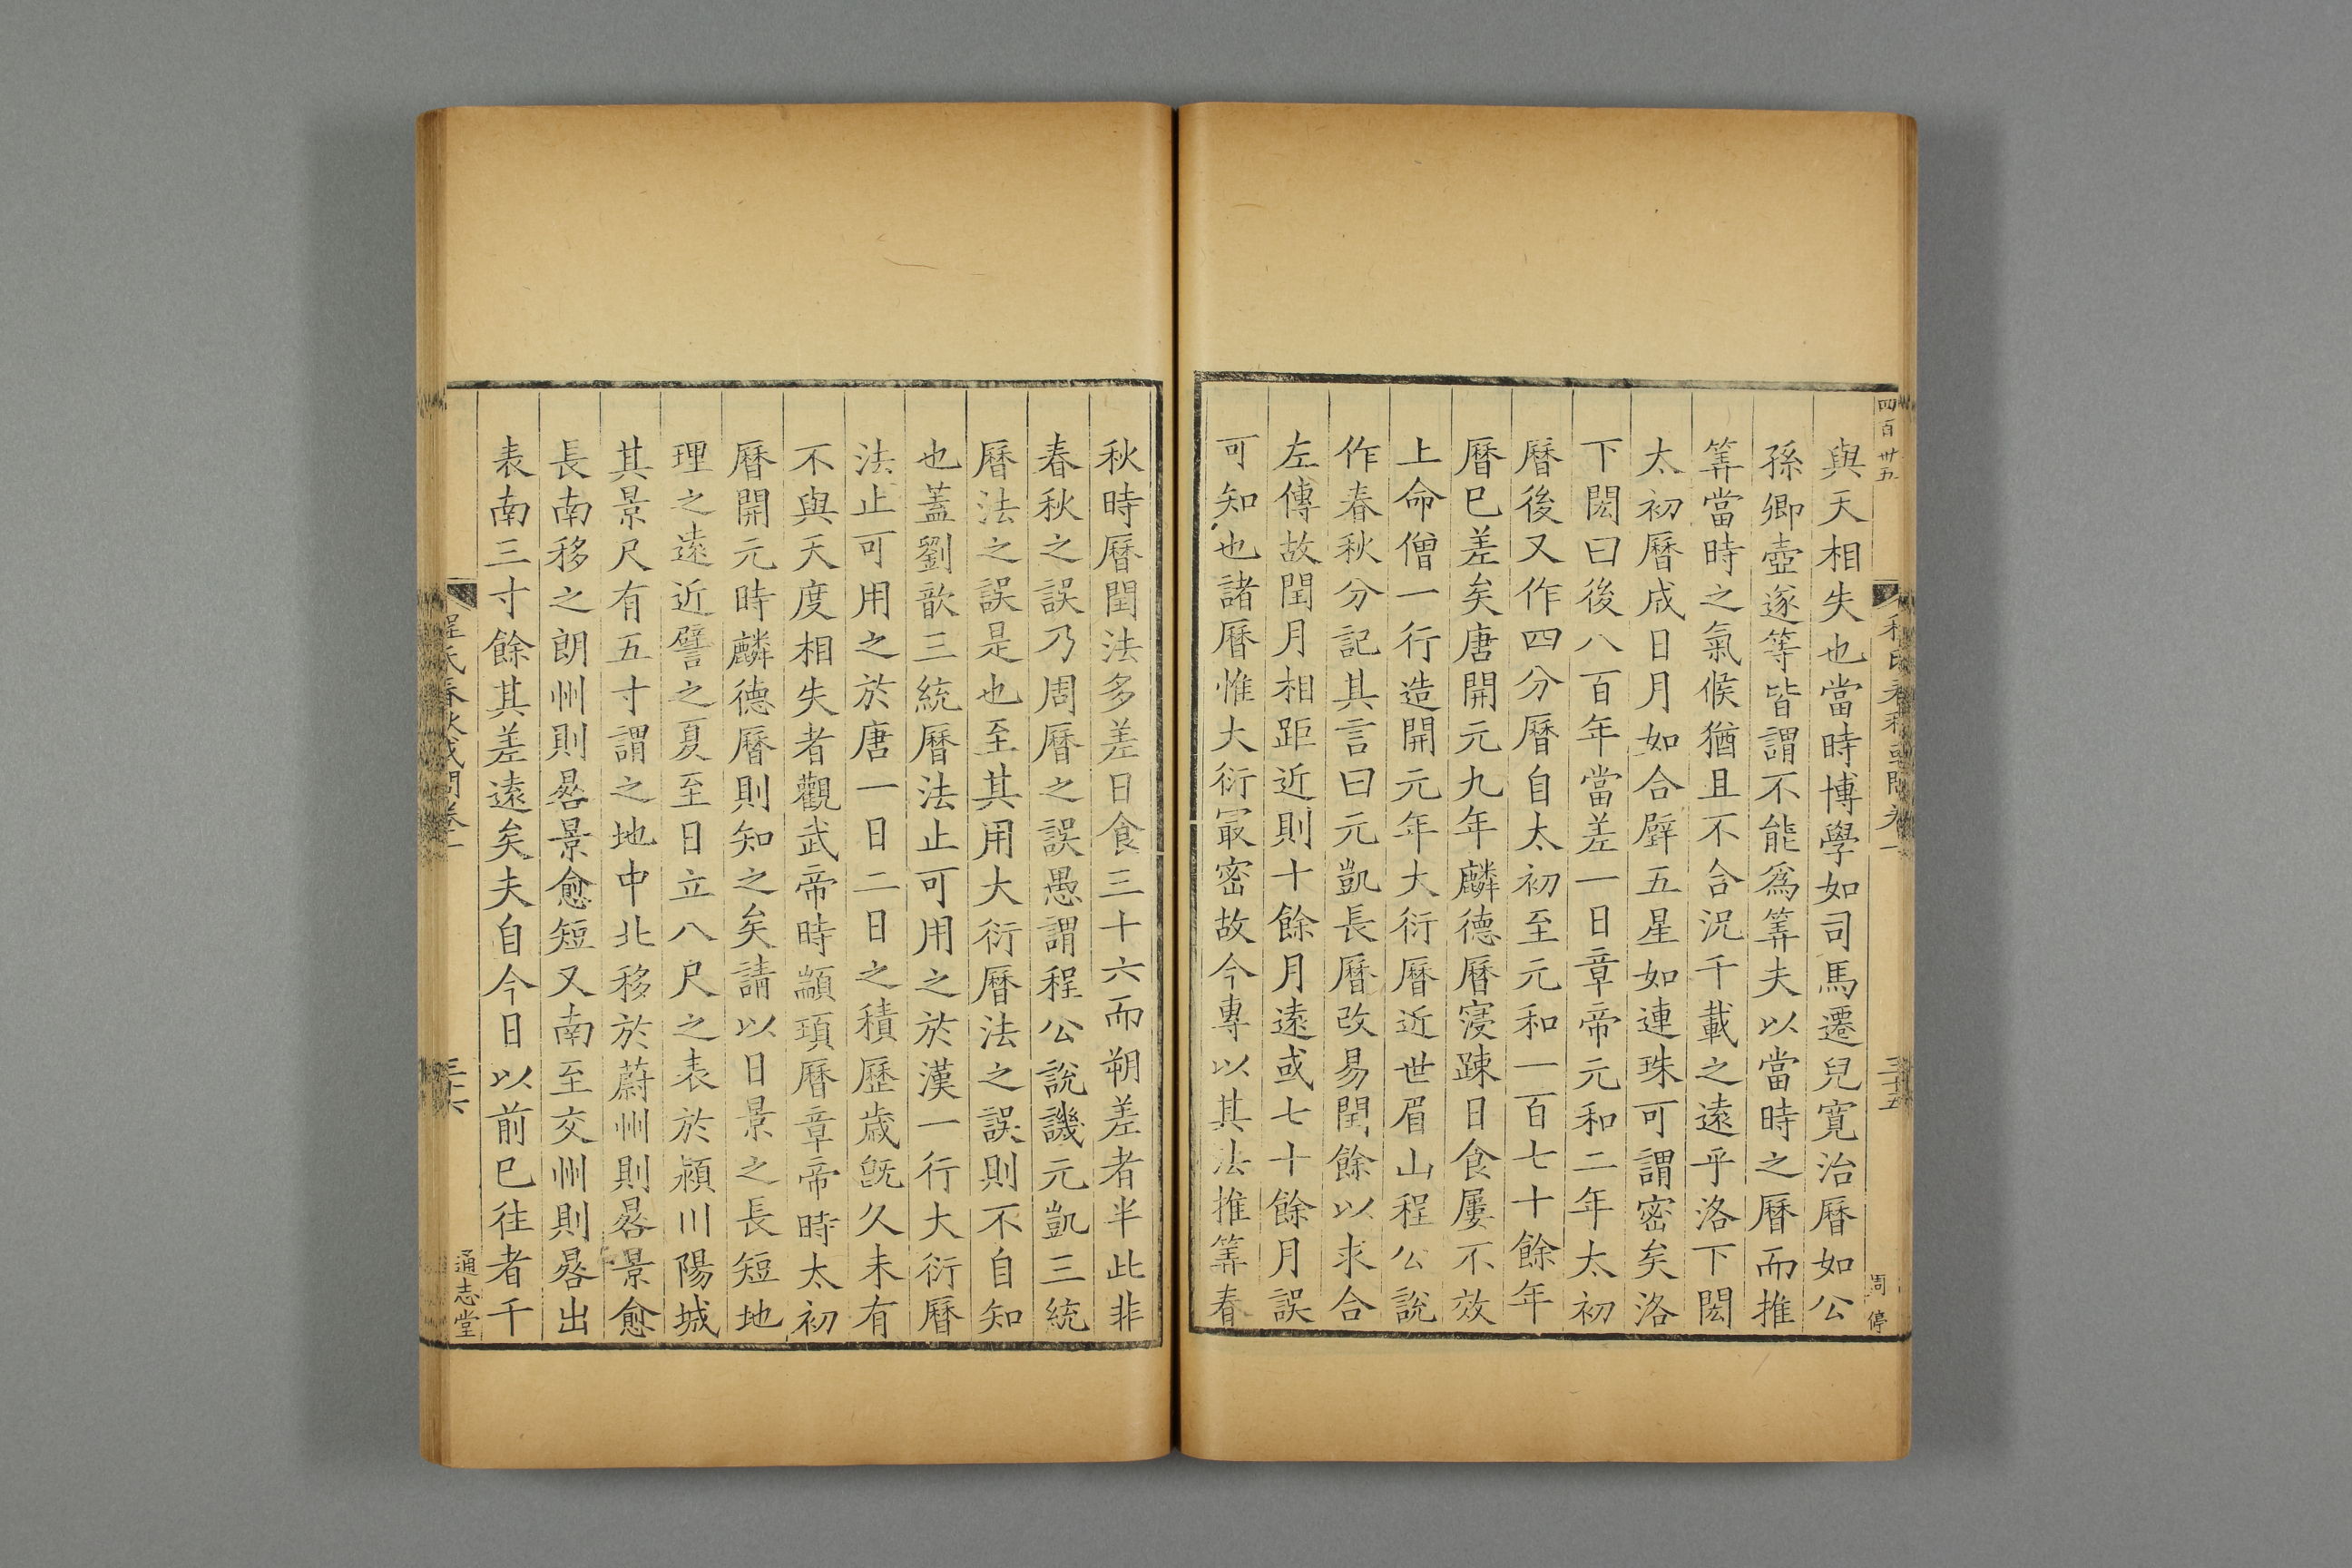 四百卅五
三十五
周 停
與天相失也當時博學如司馬遷兒寛治曆如公
孫卿壺遂等皆謂不能爲筭夫以當時之曆而推
筭當時之氣候猶且不合況千載之遠乎洛下閎
太初曆成日月如合璧五星如連珠可謂密矣洛
下閎曰後八百年當差一日章帝元和二年太初
曆後又作四分曆自太初至元和一百七十餘年
曆已差矣唐開元九年麟德曆寖踈日食屢不效
上命僧一行造開元年大衍曆近世眉山程公說
作春秋分記其言曰元凱長曆改易閏餘以求合
左傳故閏月相距近則十餘月遠或七十餘月誤
可知也諸曆惟大衍冣密故今專以其法推筭春
秋時曆閏法多差日食三十六而朔差者半此非
春秋之誤乃周曆之誤愚謂程公說譏元凱三統
曆法之誤是也至其用大衍曆法之誤則不自知
也蓋劉歆三統曆法止可用之於漢一行大衍曆
法止可用之於唐一日二日之積歷歲旣久未有
不與天度相失者觀武帝時顓頊曆章帝時太初
曆開元時麟德曆則知之矣請以日景之長短地
理之遠近譬之夏至日立八尺之表於潁川陽城
其景尺有五寸謂之地中北移於蔚州則晷景愈
長南移之朗州則晷景愈短又南至交州則晷出
表南三寸餘其差遠矣夫自今日以前已往者千
程氏春秋或問卷一
三十六
通志堂